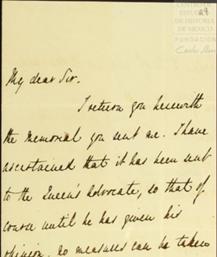 29
CENTRO DE
ESTUDIOS
DE HISTORIA
DE MEXICO
FUNDACIÓN
Carlos Slim
My dear Sir.
I return you herewith
the memorial you sent me. I have
ascertained that it has been sent
to the Queen's Advocate, so that of
course until he has given his
opinion, no measures can be taken